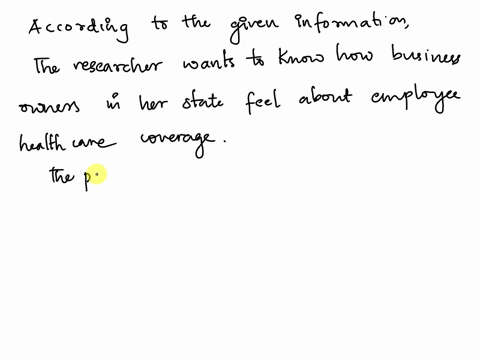 According to the given information,
The researcher wants to know how business
owners in her state feel about employee
health care coverage.
the p